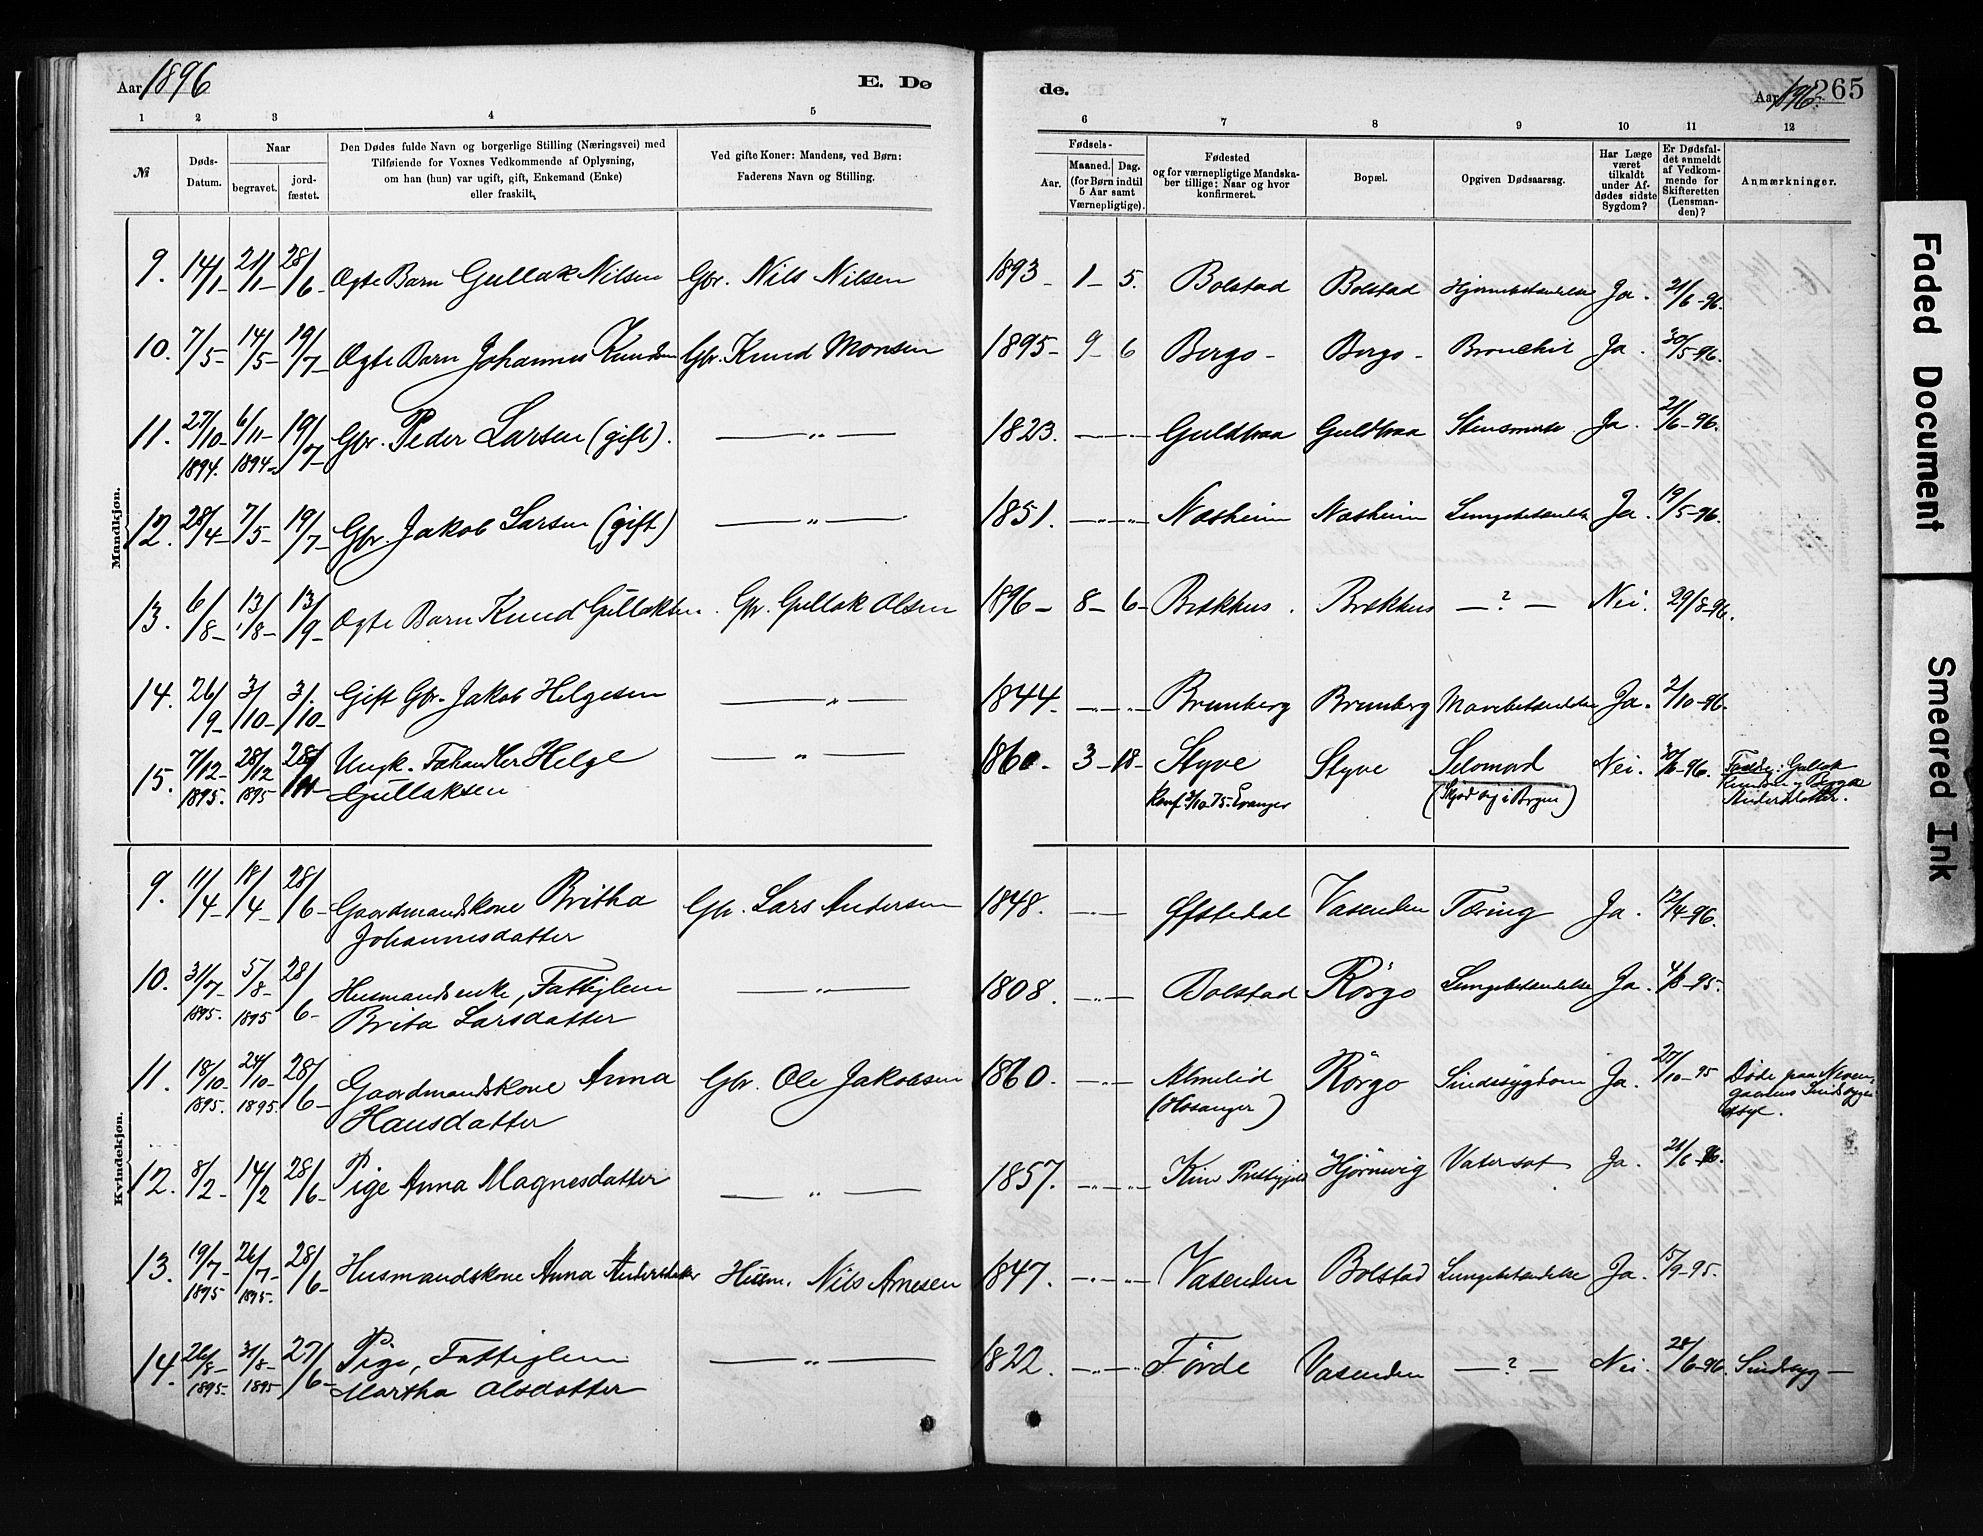 Aar 1896
E. Dø
de.
Aar 1896.
265
1 2 3 4 5
6 7 8 9 10 11 12
№
Døds-Datum.
Naar
begravet.
jordfæstet.
Den Dødes fulde Navn og borgerlige Stilling (Næringsvei) med
Tilføiende for Voxnes Vedkommende af Oplysning,
om han (hun) var ugift, gift, Enkemand (Enke)
eller fraskilt.
Ved gifte Koner: Mandens, ved Børn:
Faderens Navn og Stilling.
Fødsels-
Aar.
Maaned. Dag.
(for Børn indtil
5 Aar samt
Værnepligtige).
Fødested
og for værnepligtige Mandskaber tillige: Naar og hvor
konfirmeret.
Bopæl.
Opgiven Dødsaarsag.
Har Læge
været
tilkaldt
under Afdødes sidste
Sygdom?
Er Dødsfaldet anmeldt
af Vedkommende for
Skifteretten
(Lensmanden)?
Anmærkninger.
Mandkjøn.
9. 14/1- 21/1- 28/6- Ægte Barn Gullak Nilsen Gbr. Nils Nilsen 1893- 1- 5. Bolstad Bolstad Hjernebetændelse Ja. 21/6-96.
10. 7/5- 14/5- 19/7- Ægte Barn Johannes Knudsen Gbr. Knud Monsen 1895- 9- 6 Bergo- Bergo- Ja. 30/5-96.
11. 27/10- 1894. 6/11- 1894- 19/7- Gbr. Peder Larsen (gift). —„— 1823. Guldbraa Guldbraa Ja. 21/6-96.
12. 28/4- 7/5- 19/7- Gbr. Jakob Larsen (gift) —„— 1851. Næsheim Næsheim Lungebetændelse Ja. 19/5-96.
13. 6/8- 13/8- 13/9- Ægte Barn Knud Gullaksen. Gbr. Gullak Olsen 1896- 8- 6- Brækhus. Brækhus —?— Nei. 29/8-96.
14. 26/9- 3/10- 3/10- Gift Gbr. Jakob Helgesen —„— 1844. Brunberg Brunberg Mavebetændelse Ja. 2/10-96.
15. 7/12- 1895. 28/12 1895 28/ Ungk. Fæhandler Helge
Gullaksen —„— 1860. 3- 18- Styve Styve Selvmord Nei. 30/6-96. Forældre: Gullak
Konf. 3/10 75-Evanger (Skjød sig i Bergen) Knudsen og
Andersdatter.
Kvindekjøn.
9. 11/4- 18/4- 28/6- Gaardmandskone Britha
Johannesdatter Gbr. Lars Andersen 1848. Øfstedal Vasenden Tæring Ja. 12/4-96.
10. 31/7- 1895. 5/8- 1895 28/6- Husmandsenke, Fattiglem
Brita Larsdatter —„— 1808. Bolstad Rørgo Lungebetændelse Ja. 4/8-95.
11. 18/10- 1895. 24/10- 1895. 28/6- Gaardmandskone Anna
Hansdatter Gbr. Ole Jakobsen 1860. Almelid
(Hosanger) Rørgo Sindssygdom Ja. 27/10-95 Døde paa Neven-
gaardens Sindssyge-
asyl.
12. 8/2- 14/2 28/6- Pige Anna Magnesdatter —„— 1857. Hjørnevig Vatersot Ja. 21/6-96.
13. 19/7- 1895 26/7- 1895. 28/6- Husmandskone Anna Andersdatter Husm. Nils Arnesen 1847. Vasenden Bolstad Lungebetændelse Ja. 15/9-95.
14. 26/8- 1895- 31/8- 1895 27/6- Pige, Fattiglem
Martha Olsdatter —„— 1822. Førde Vasenden —?— Nei. 28/6-96. Sindssyg—
Faded Document
Smeared Ink